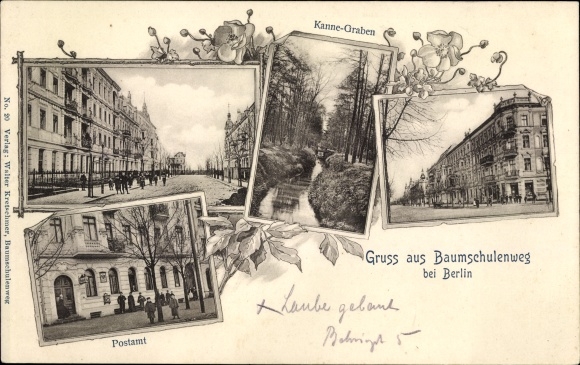 Kanne-Graben
No. 20 Verlag: Walter Kretschmer, Baumschulenweg
Gruss aus Baumschulenweg
bei Berlin
Laube gebaut
5.
Postamt